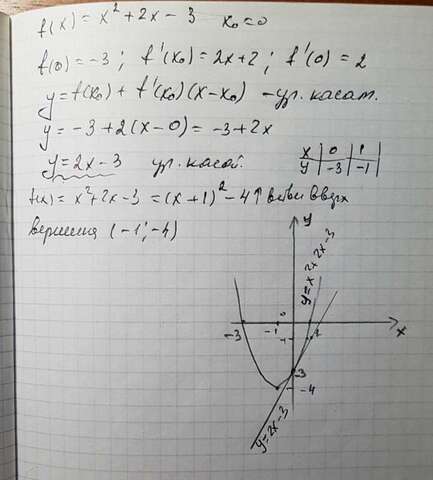 f(x) = x² + 2x − 3   x₀ = 0
f(0) = −3 ; f'(x₀) = 2x + 2 ; f'(0) = 2
y = f(x₀) + f'(x₀)(x − x₀) − ур. касат.
y = −3 + 2(x − 0) = −3 + 2x
y = 2x − 3   ур. касат.
x | 0 | 1
y | −3 | −1
f(x) = x² + 2x − 3 = (x + 1)² − 4 ↑ ветви вверх
вершина (−1; −4)
y
y = x² + 2x − 3
−3   −1   0   2   x
−1
−3
−4
y = 2x − 3